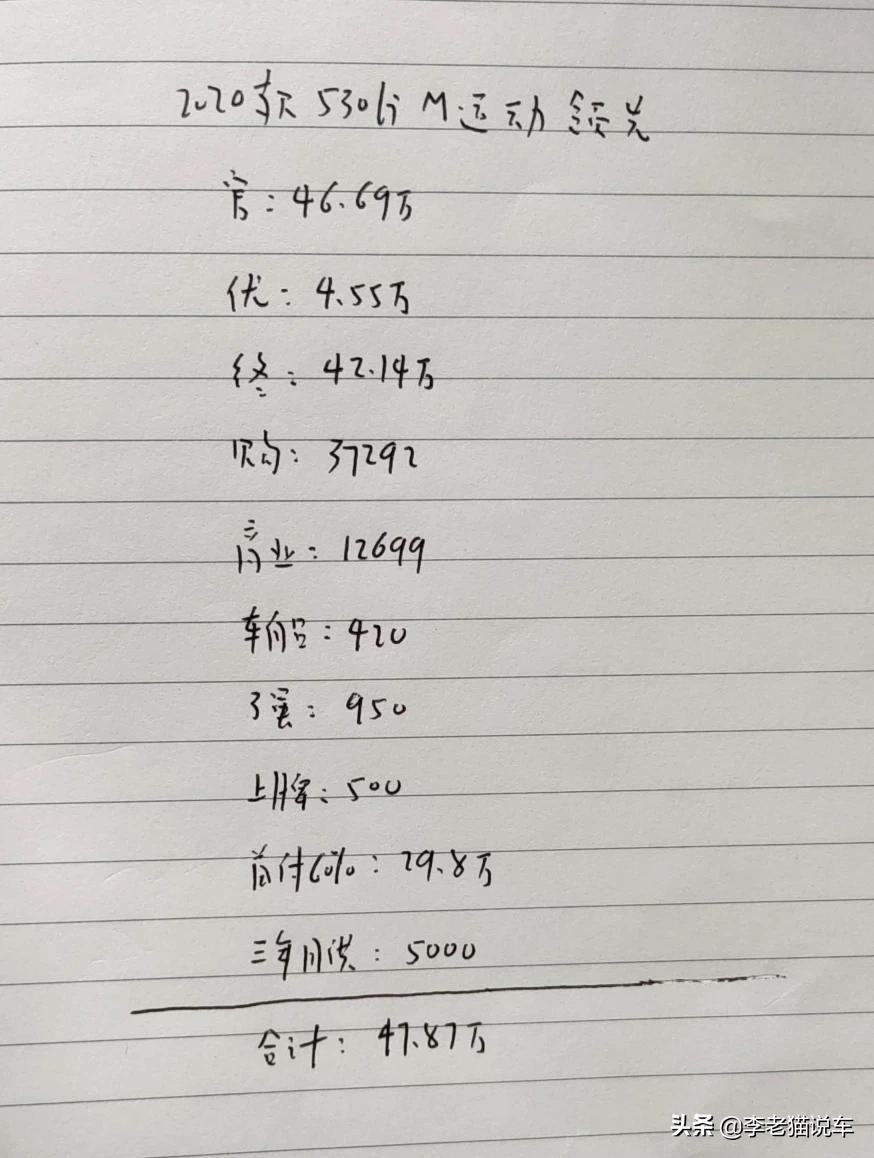 2020款 530li M运动 领先
官：46.69万
优：4.55万
终：42.14万
购：37292
商业：12699
车船：420
强：950
上牌：500
首付60%：29.8万
三年月供：5000
合计：47.87万
头条 @李老猫说车